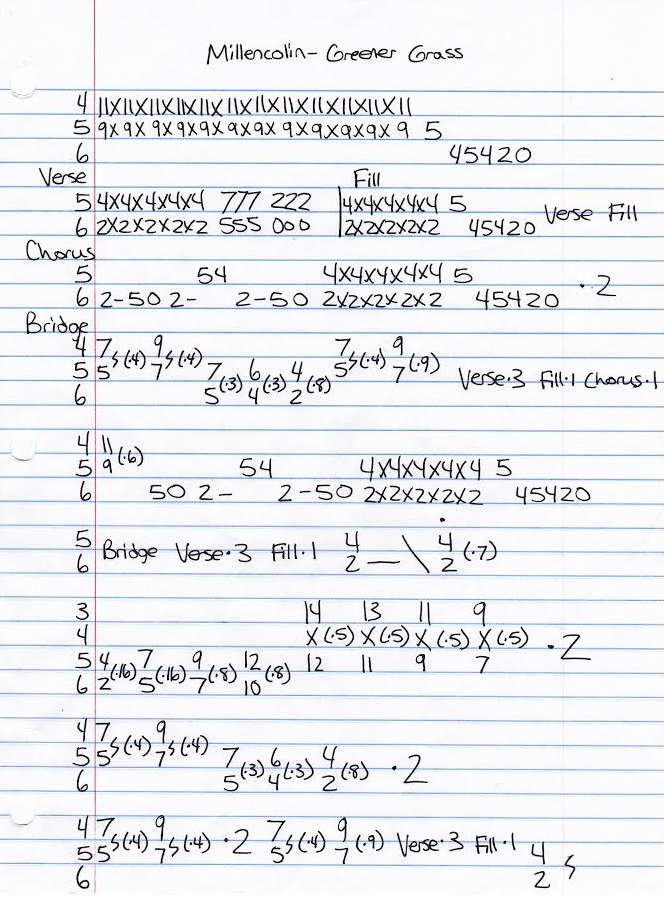 Millencolin- Greener Grass
4 11X11X11X11X11X11X11X11X11X11X11X11
5 9X9X9X9X9X9X9X9X9X9X9X9 5
6 45420
Verse Fill
5 4X4X4X4X4 777 222 4X4X4X4X4 5 Verse Fill
6 2X2X2X2X2 555 000 2X2X2X2X2 45420
Chorus
5 54 4X4X4X4X4 5 ·2
6 2-502- 2-50 2X2X2X2X2 45420
Bridge
4 7 s(·4) 9 s(·4) 7 s(·4) 9
5 5 7 7(·3) 6(·3) 4(·8) 5 7(·9) Verse·3 Fill·1 Chorus·1
6 5 4 2
4 11
5 9(·6) 54 4X4X4X4X4 5
6 50 2- 2-50 2X2X2X2X2 45420
5 Bridge Verse·3 Fill·1 4 — \ 4(·7)
6 2 2
3 14 13 11 9
4 X(·5) X(·5) X(·5) X(·5) ·2
5 4(·16) 7(·16) 9(·8) 12(·8) 12 11 9 7
6 2 5 7 10
4 7 s(·4) 9 s(·4)
5 5 7 7(·3) 6(·3) 4(·8) ·2
6 5 4 2
4 7 s(·4) 9 s(·4) ·2 7 s(·4) 9(·9) Verse·3 Fill·1
5 5 7 5 7 4 s
6 2